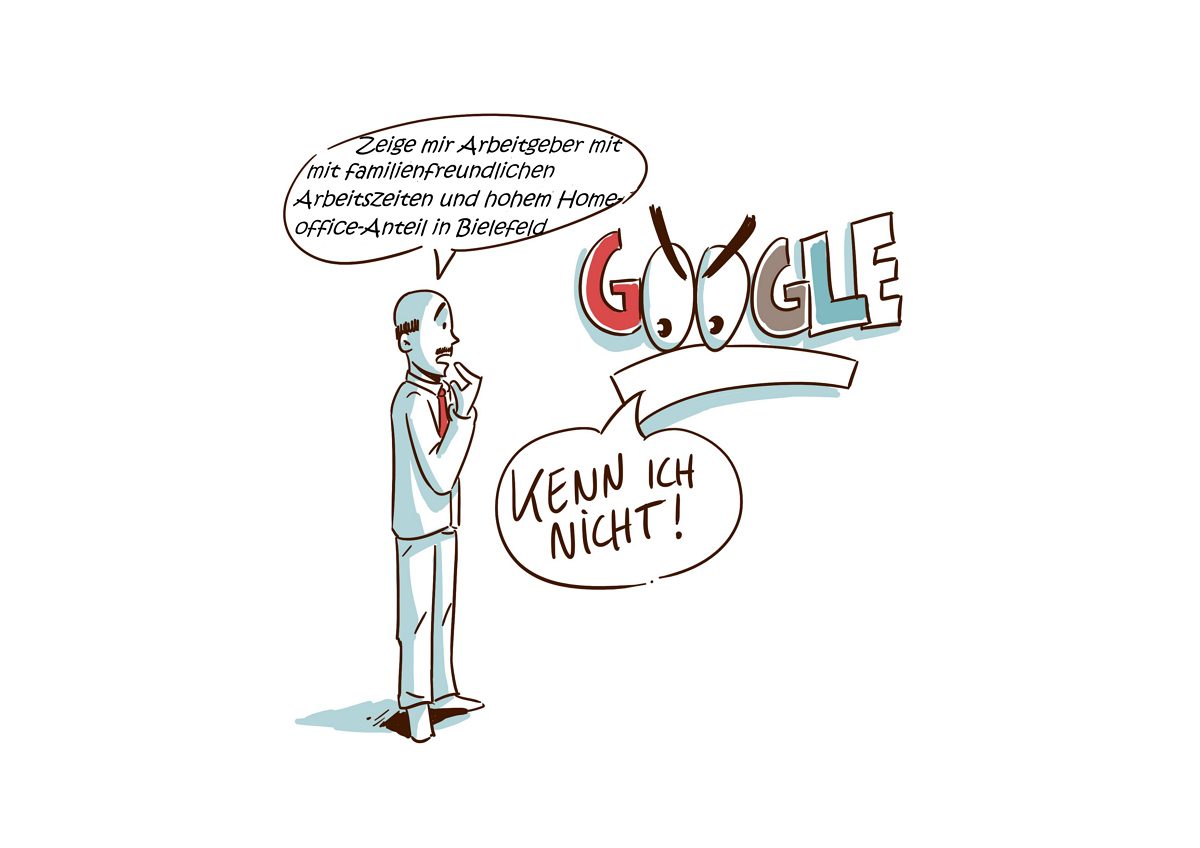 Zeige mir Arbeitgeber mit
mit familienfreundlichen
Arbeitszeiten und hohem Home-
office-Anteil in Bielefeld
GOOGLE
KENN ICH
NICHT!